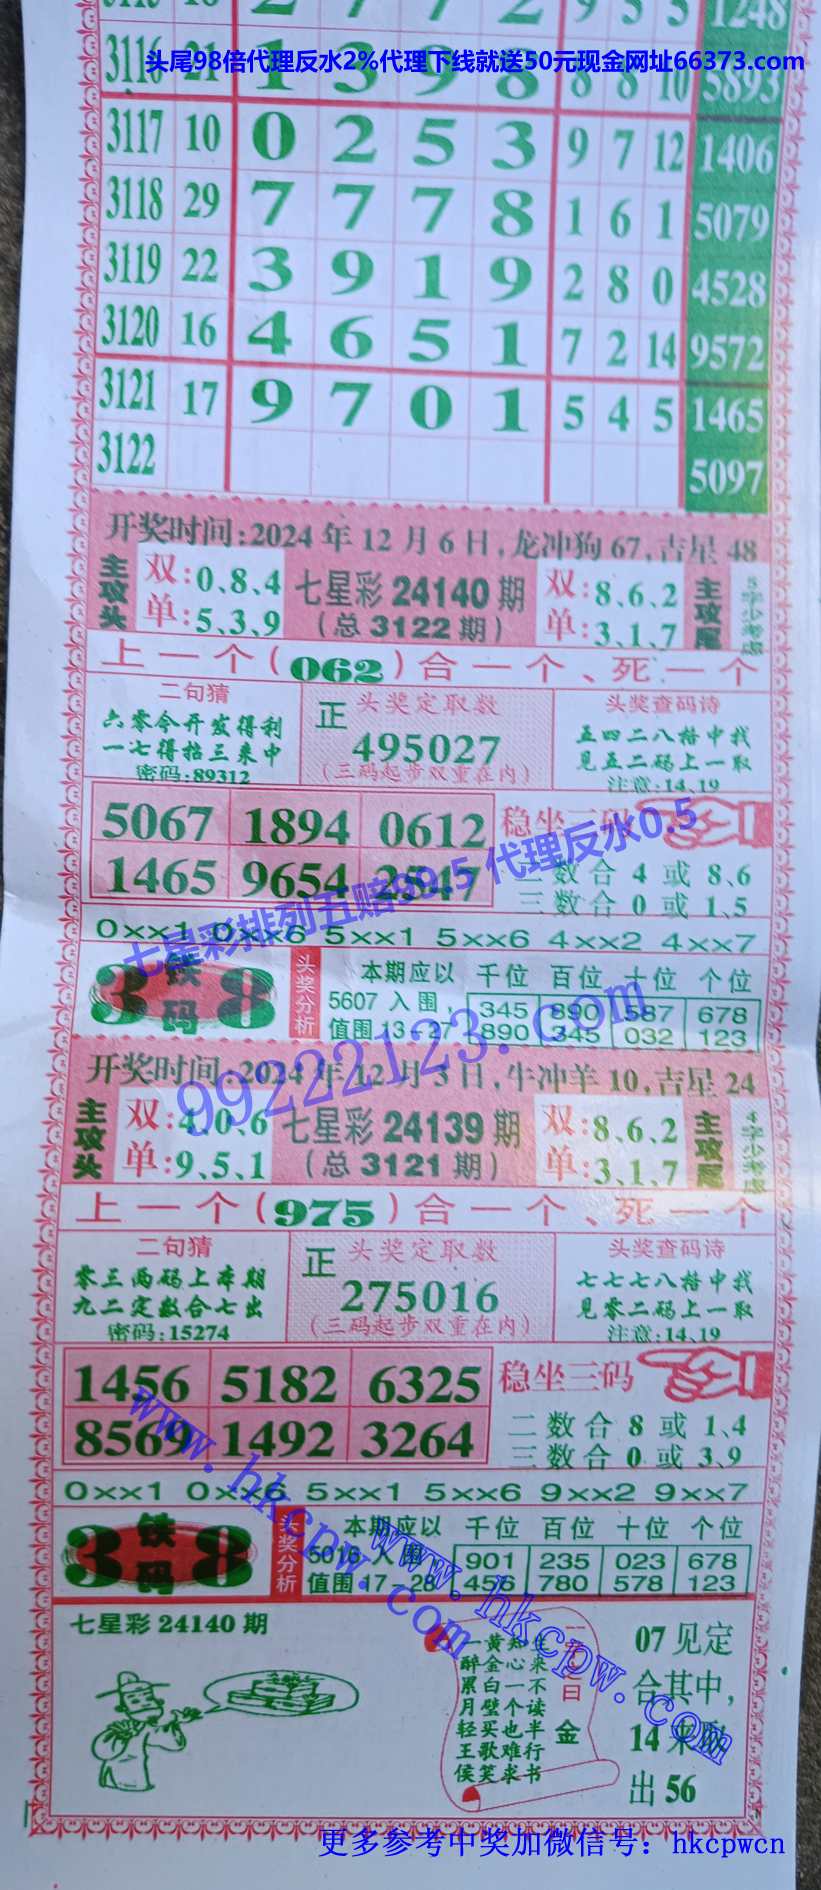 2 7 7 2 9 5 5 1248
头尾98倍代理反水2%代理下线就送50元现金网址66373.com
3116 21 1 3 9 8 8 8 10 5893
3117 10 0 2 5 3 9 7 12 1406
3118 29 7 7 7 8 1 6 1 5079
3119 22 3 9 1 9 2 8 0 4528
3120 16 4 6 5 1 7 2 14 9572
3121 17 9 7 0 1 5 4 5 1465
3122 5097
开奖时间:2024年12月6日,龙冲狗67,吉星48
主攻头 双:0、8、4 七星彩24140期 双:8、6、2 主攻尾 5字少考虑
单:5、3、9 (总3122期) 单:3、1、7
上一个(062)合一个、死一个
二句猜 正 头奖定取数 头奖查码诗
六零今开发得利 495027 五四二八格中找
一七得招三来中 (三码起步双重在内) 见五二码上一取
密码:89312 注意:14、19
5067 1894 0612 稳坐三码
1465 9654 2547 二数合4或8、6
三数合0或1、5
七星彩排列五赔99.5 代理反水0.5
0××1 0××6 5××1 5××6 4××2 4××7
3铁码8 头奖分析 本期应以 千位 百位 十位 个位
5607入围, 345 890 587 678
值围13-27 890 345 032 123
99222123.com
开奖时间:2024年12月3日,牛冲羊10,吉星24
主攻头 双:4、0、6 七星彩24139期 双:8、6、2 主攻尾 4字少考虑
单:9、5、1 (总3121期) 单:3、1、7
上一个(975)合一个、死一个
二句猜 正 头奖定取数 头奖查码诗
零三两码上本期 275016 七七七八格中找
九二定数合七出 (三码起步双重在内) 见零二码上一取
密码:15274 注意:14、19
1456 5182 6325 稳坐三码
8569 1492 3264 二数合8或1、4
三数合0或3、9
www.hkcpw.com
0××1 0××6 5××1 5××6 9××2 9××7
3铁码8 头奖分析 本期应以 千位 百位 十位 个位
5016入围, 901 235 023 678
值围17-28 456 780 578 123
www.hkcpw.com
七星彩24140期
一黄知生
醉金心来
累白一不
月璧个读
轻买也半
王歌难行
侯笑求书
日
金
07见定
合其中,
14来
出56
更多参考中奖加微信号：hkcpwcn